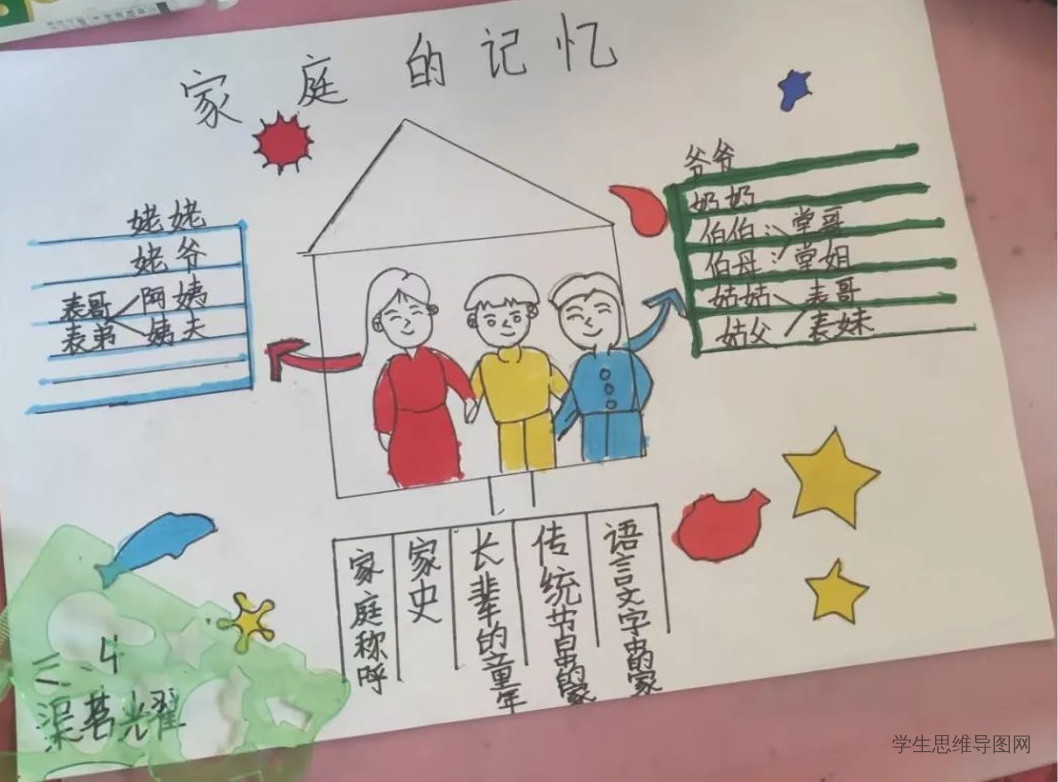 家庭的记忆
姥姥
姥爷
表哥 阿姨
表弟 姨夫
爷爷
奶奶
伯伯 堂哥
伯母 堂姐
姑姑 表哥
姑父 表妹
家庭称呼
家史
长辈的童年
传统节日里的家
语言文字里的家
三 4
渠茗耀
学生思维导图网